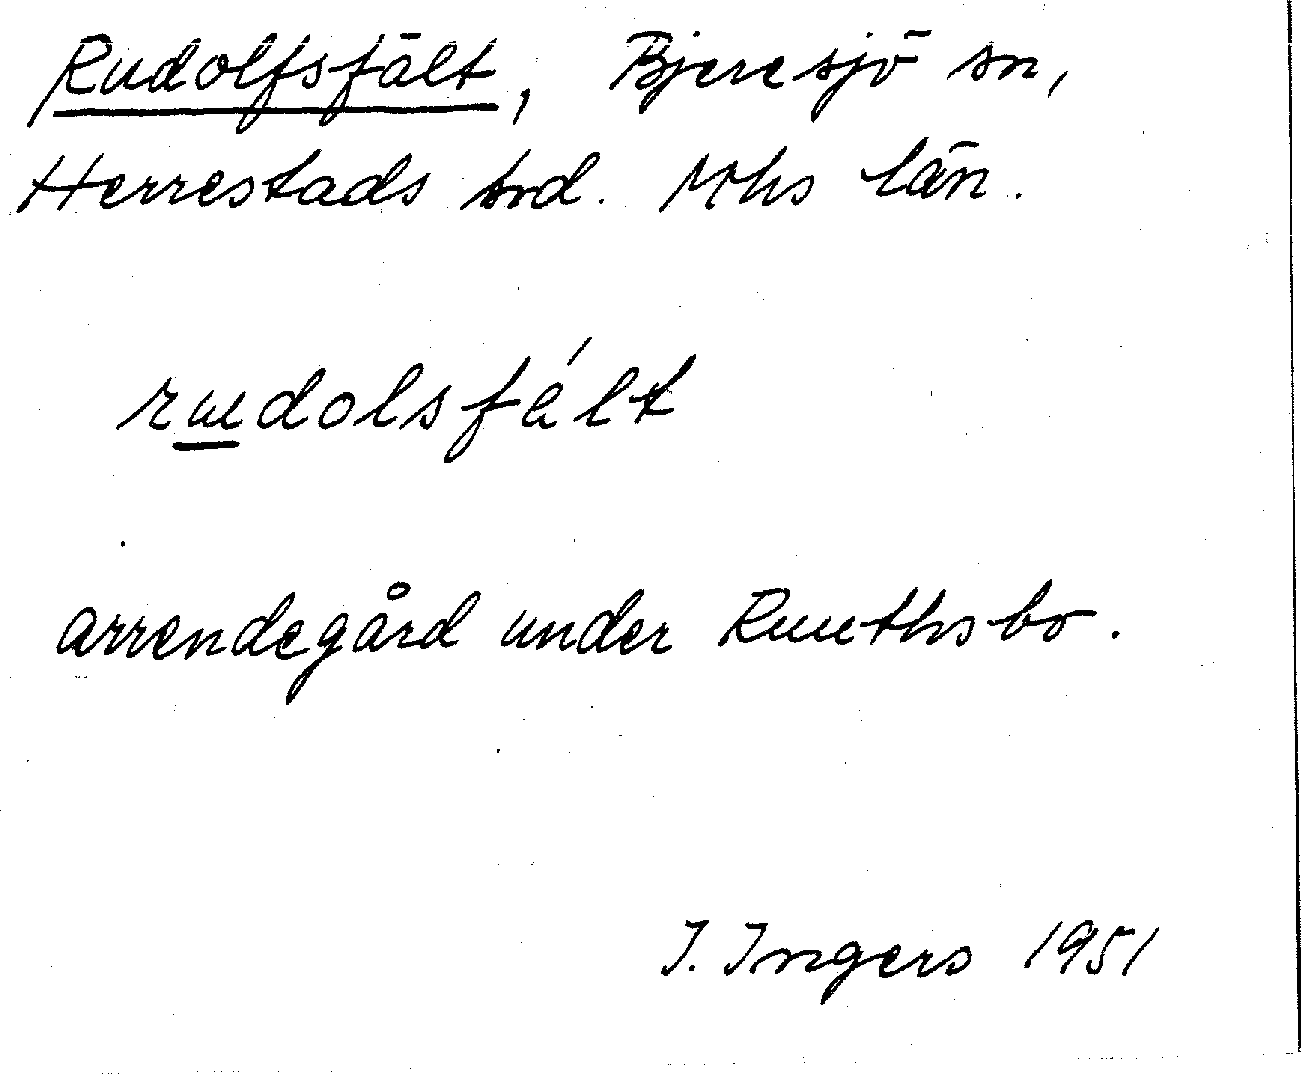 Rudolfsfält, Bjeresjö sn,
Herrestads hrd. Mhs län.
rudolsfált
arrendegård under Ruuthsbo.
I. Ingers 1951